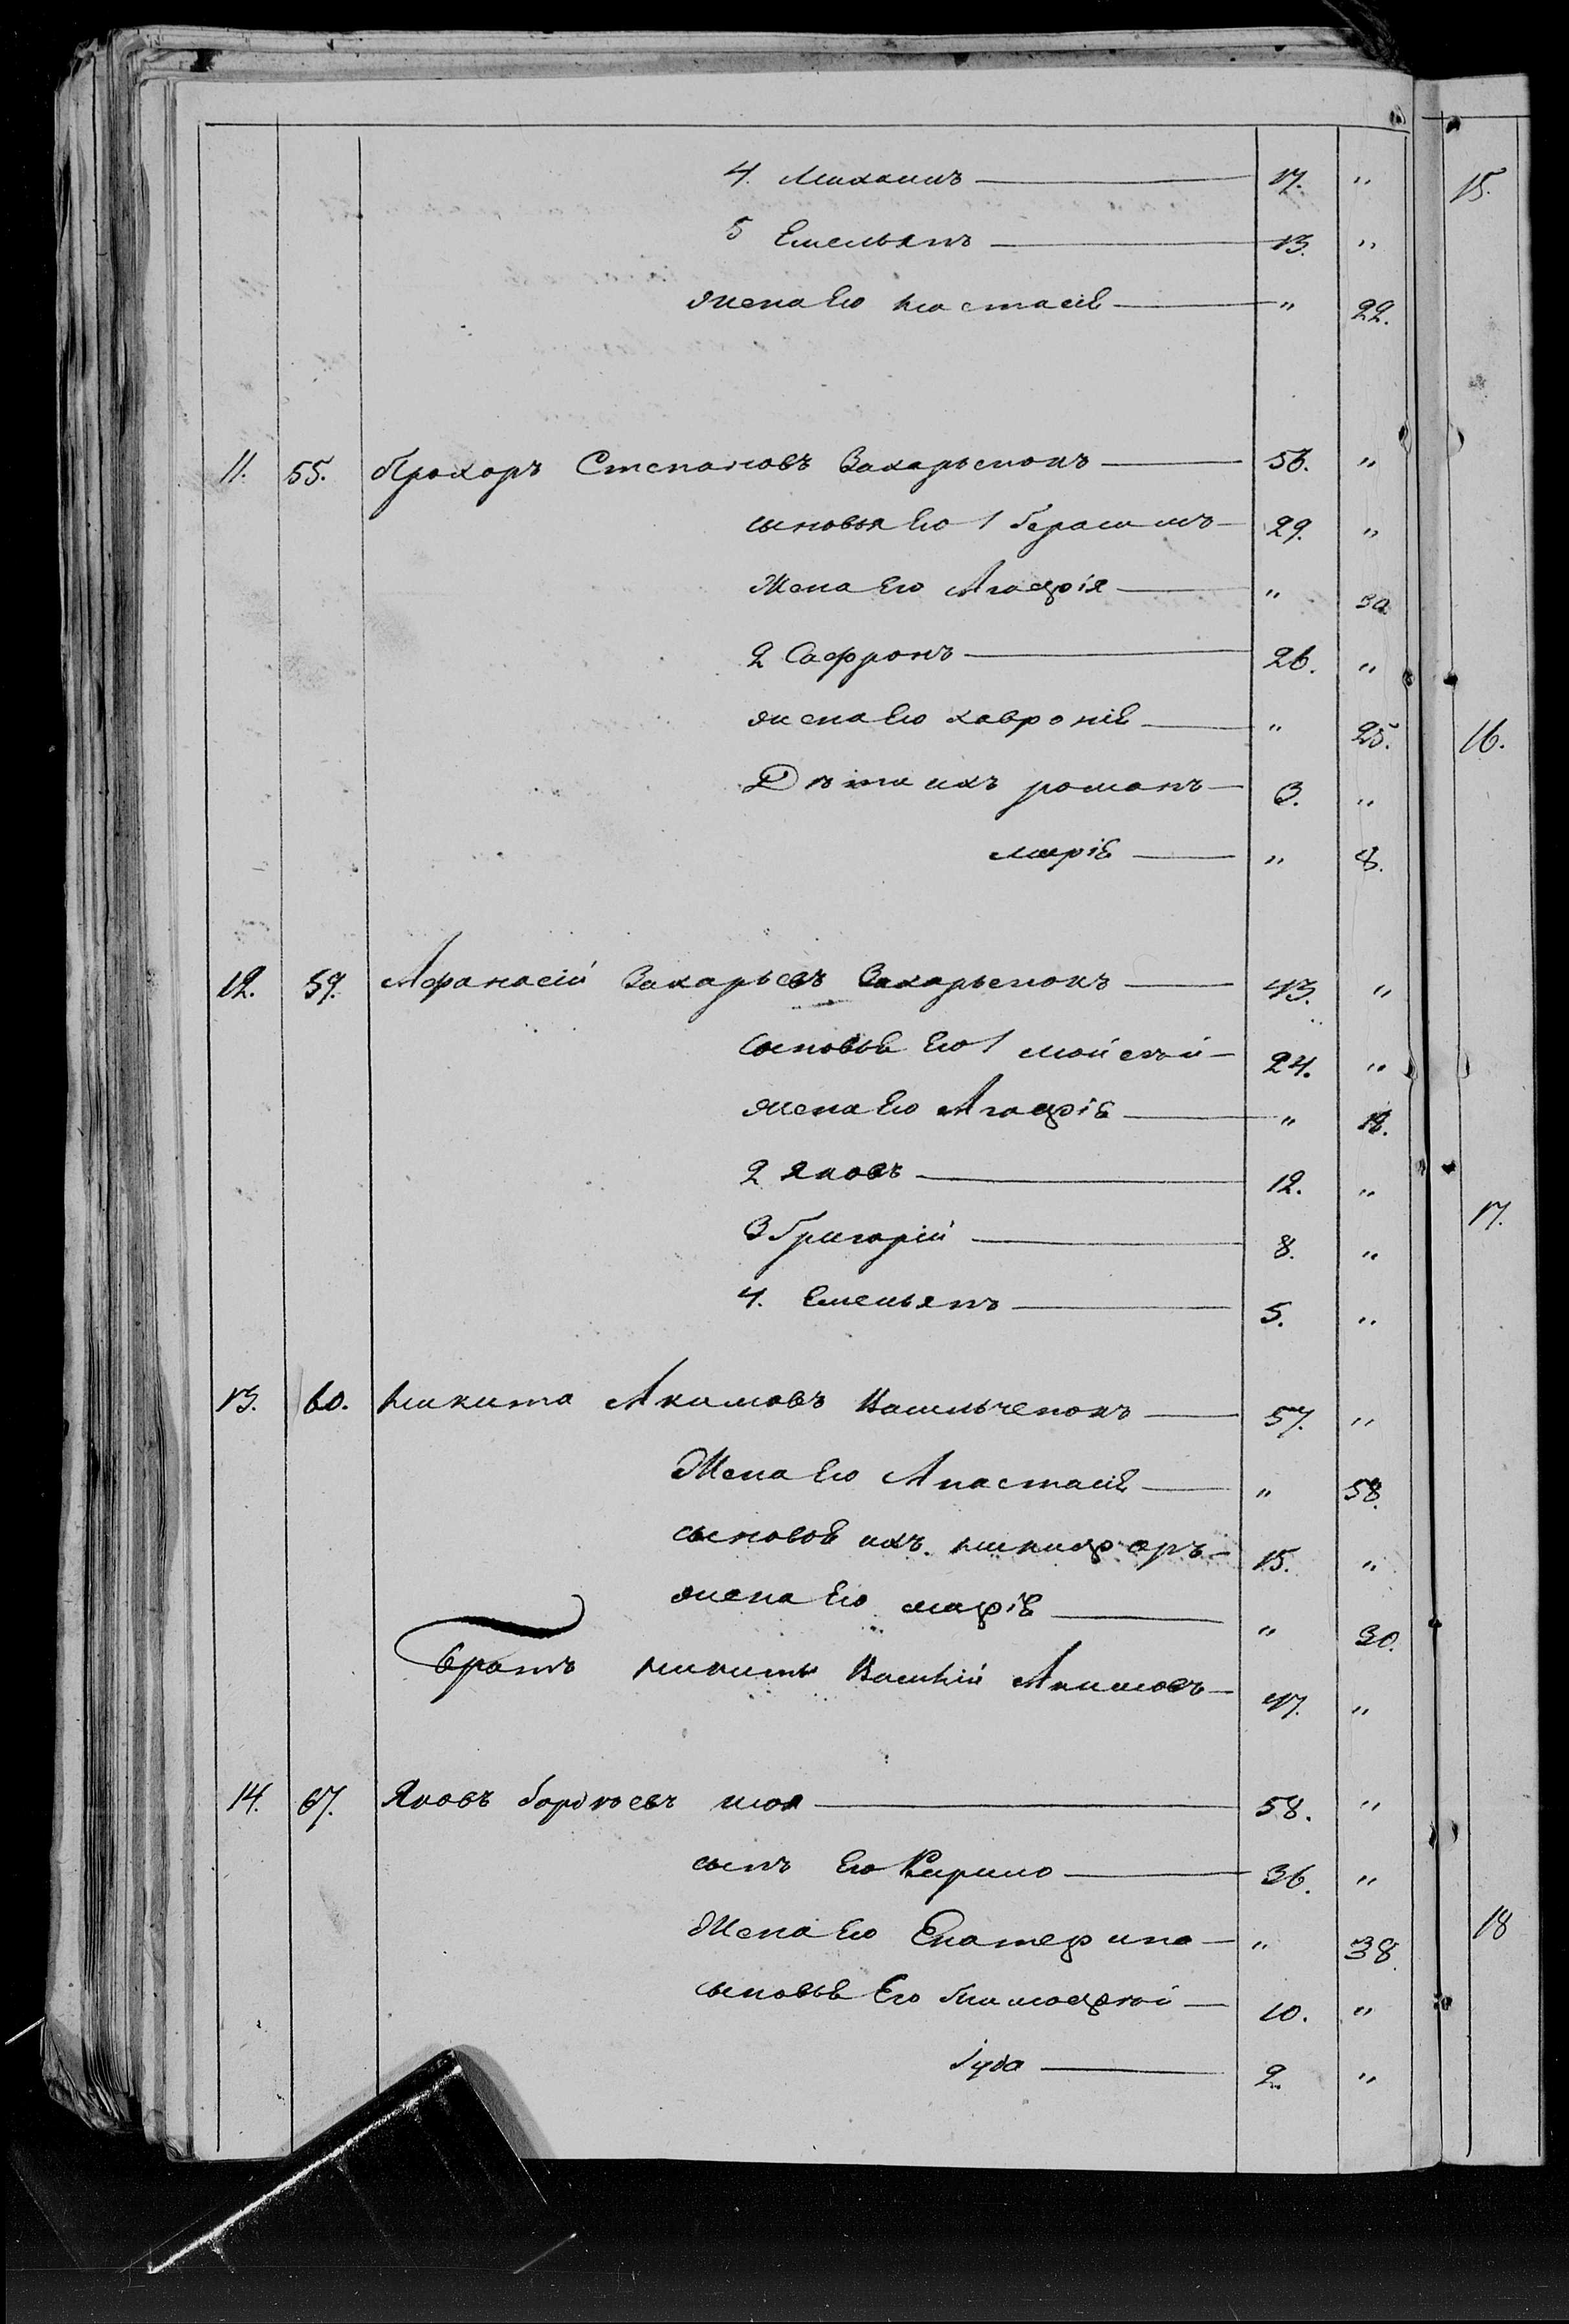 4. Михаилъ — 17. "
5 Емельянъ — 13. "
жена Его Настасія — " 22.
11. 55. Прохоръ Степановъ Захарьенокъ — 56. "
сыновья Его 1 Герасимъ — 29. "
Жена Его Агафія — " 30
2 Сафронъ — 26. "
жена Его Хавронія — " 25.
Дѣти ихъ романъ — 3. "
марія — " 8.
12. 59. Афанасій Захарьевъ Захарьенокъ — 43. "
сыновья Его 1 мойсѣй — 24. "
жена Его Агафія — " 18.
2 Яковъ — 12. "
3 Григорій — 8. "
4. Емельянъ — 5. "
13. 60. Никита Акимовъ — 57. "
Жена Его Анастасія — " 58.
сыновья ихъ никифоръ — 15. "
жена Его марія — " 30.
братъ никиты Акимовъ — 47. "
14. 67. Яковъ — 58. "
сынъ Его Кирило — 36. "
Жена Его Екатерина — " 38.
сыновья Его Тимофѣй — 10. "
Іуда — 2. "
15.
16.
17.
18